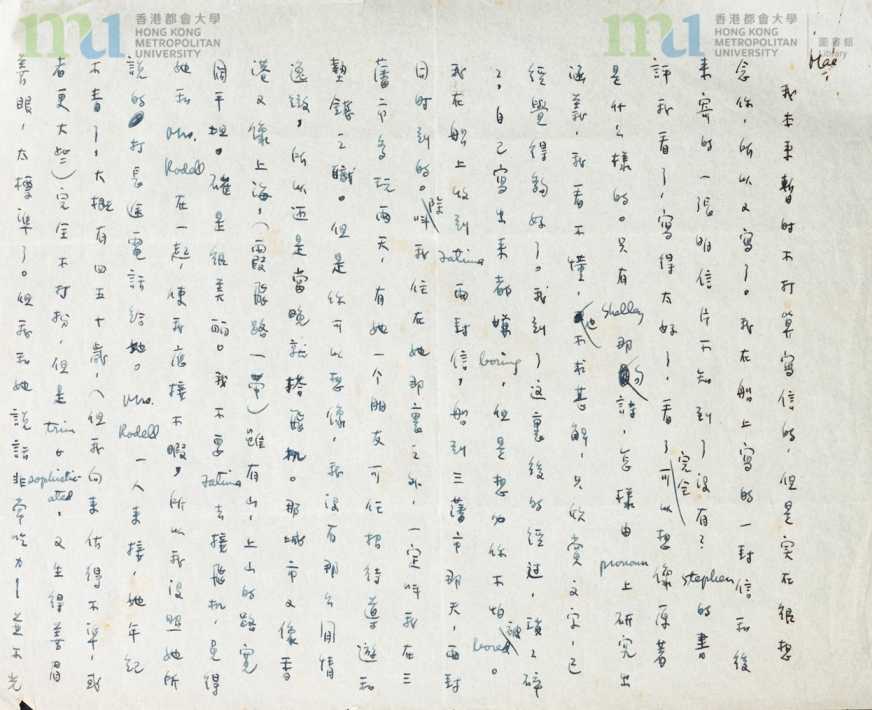 香港都會大學
HONG KONG
METROPOLITAN
UNIVERSITY
香港都會大學
HONG KONG
METROPOLITAN
UNIVERSITY
圖書館
Library
Mae,
我本來暫時不打算寫信的，但是実在很想
念你，所以又寫了。我在船上寫的一封信和後
來寄的一張明信片不知到了沒有？Stephen的書
評我看了，寫得太好了，看了完全可以想像原著
是什么樣的。只有Shelley那句詩，怎樣由pronoun上研究出
涵義，我看不懂，也不求甚解，只欣賞文字，已
經覺得夠好了。我到了這裏後的經过，瑣瑣碎
碎，自己寫出來都嫌boring，但是想必你不怕被bored。
我在船上收到Fatima兩封信，船到三藩市那天，兩封
同时到的。除叫我住在她那裏之外，一定叫我在三
藩市多玩兩天，有她一个朋友可任招待導遊和
墊錢之職。但是你可以想像，我沒有那么閒情
逸緻，所以还是當晚就搭飛机。那城市又像香
港又像上海，（霞飛路一帶）雖有山，上山的路寬
闊平坦。確是很美丽。我不要Fatima去接飛机，見得
她和Mrs. Rodell在一起，使我应接不暇，所以我沒照她所
說的打長途電話給她。Mrs. Rodell一人來接，她年紀
不青了，大概有四五十歲，（但我向來估得不準，或
者更大些）完全不打扮，但是trim & sophisticated，又生得善眉
善眼，太標準了。但我和她說話非常吃力—並不光